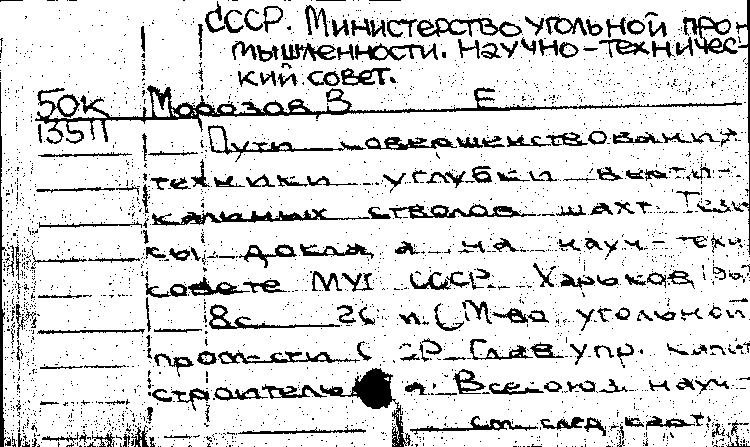 СССР. Министерство угольной про-
мышленности. Научно-техничес-
кий совет.
50к Морозов, В Е
135П
Пути совершенствования
техники углубки верти-
кальных стволов шахт. Тези
сы доклада на науч-техн
совете МУП СССР. Харьков,
8с. 26 п. (М-во угольной
пром-сти СССР Глав упр. капит
строительства. Всесоюз. науч-
см. след. карт.